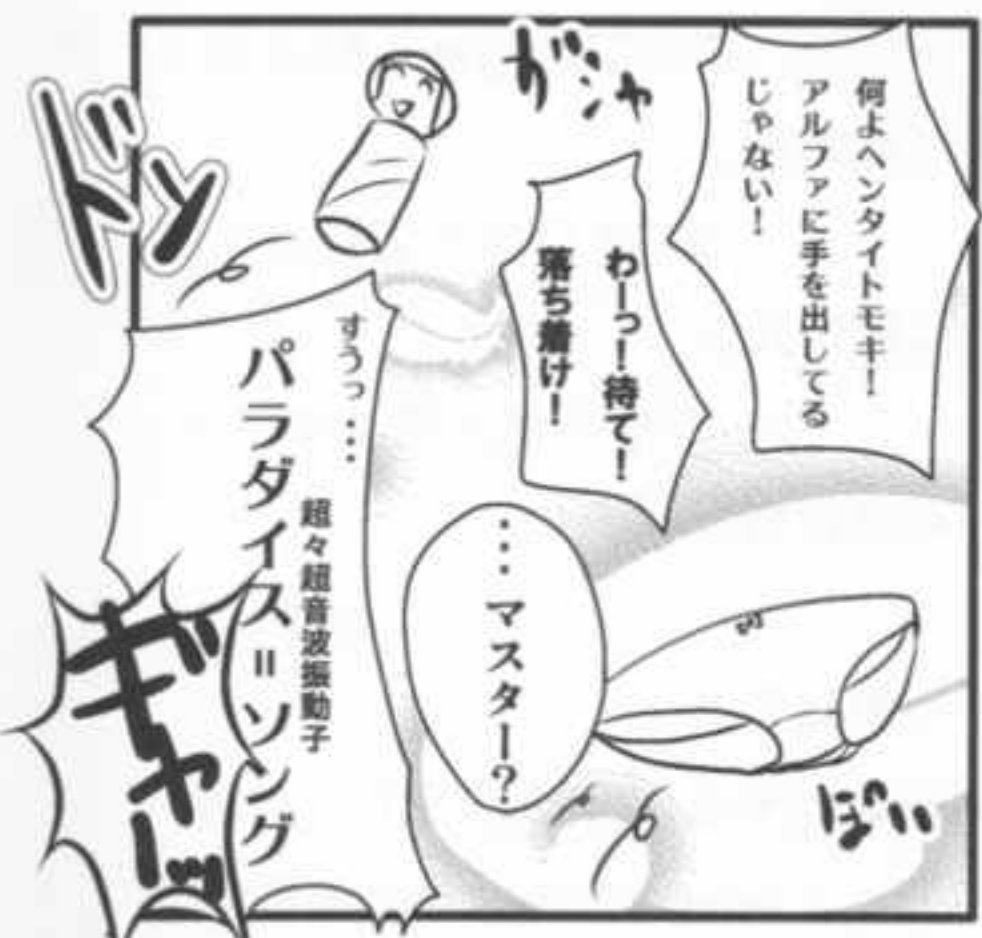 何よヘンタイトモキ！
アルファに手を出してる
じゃない！
ガシャ
わーっ！待て！
落ち着け！
ドン
・・・マスター？
ぽい
すうっ・・・
超々超音波振動子
パラダイス＝ソング
ギャーッ